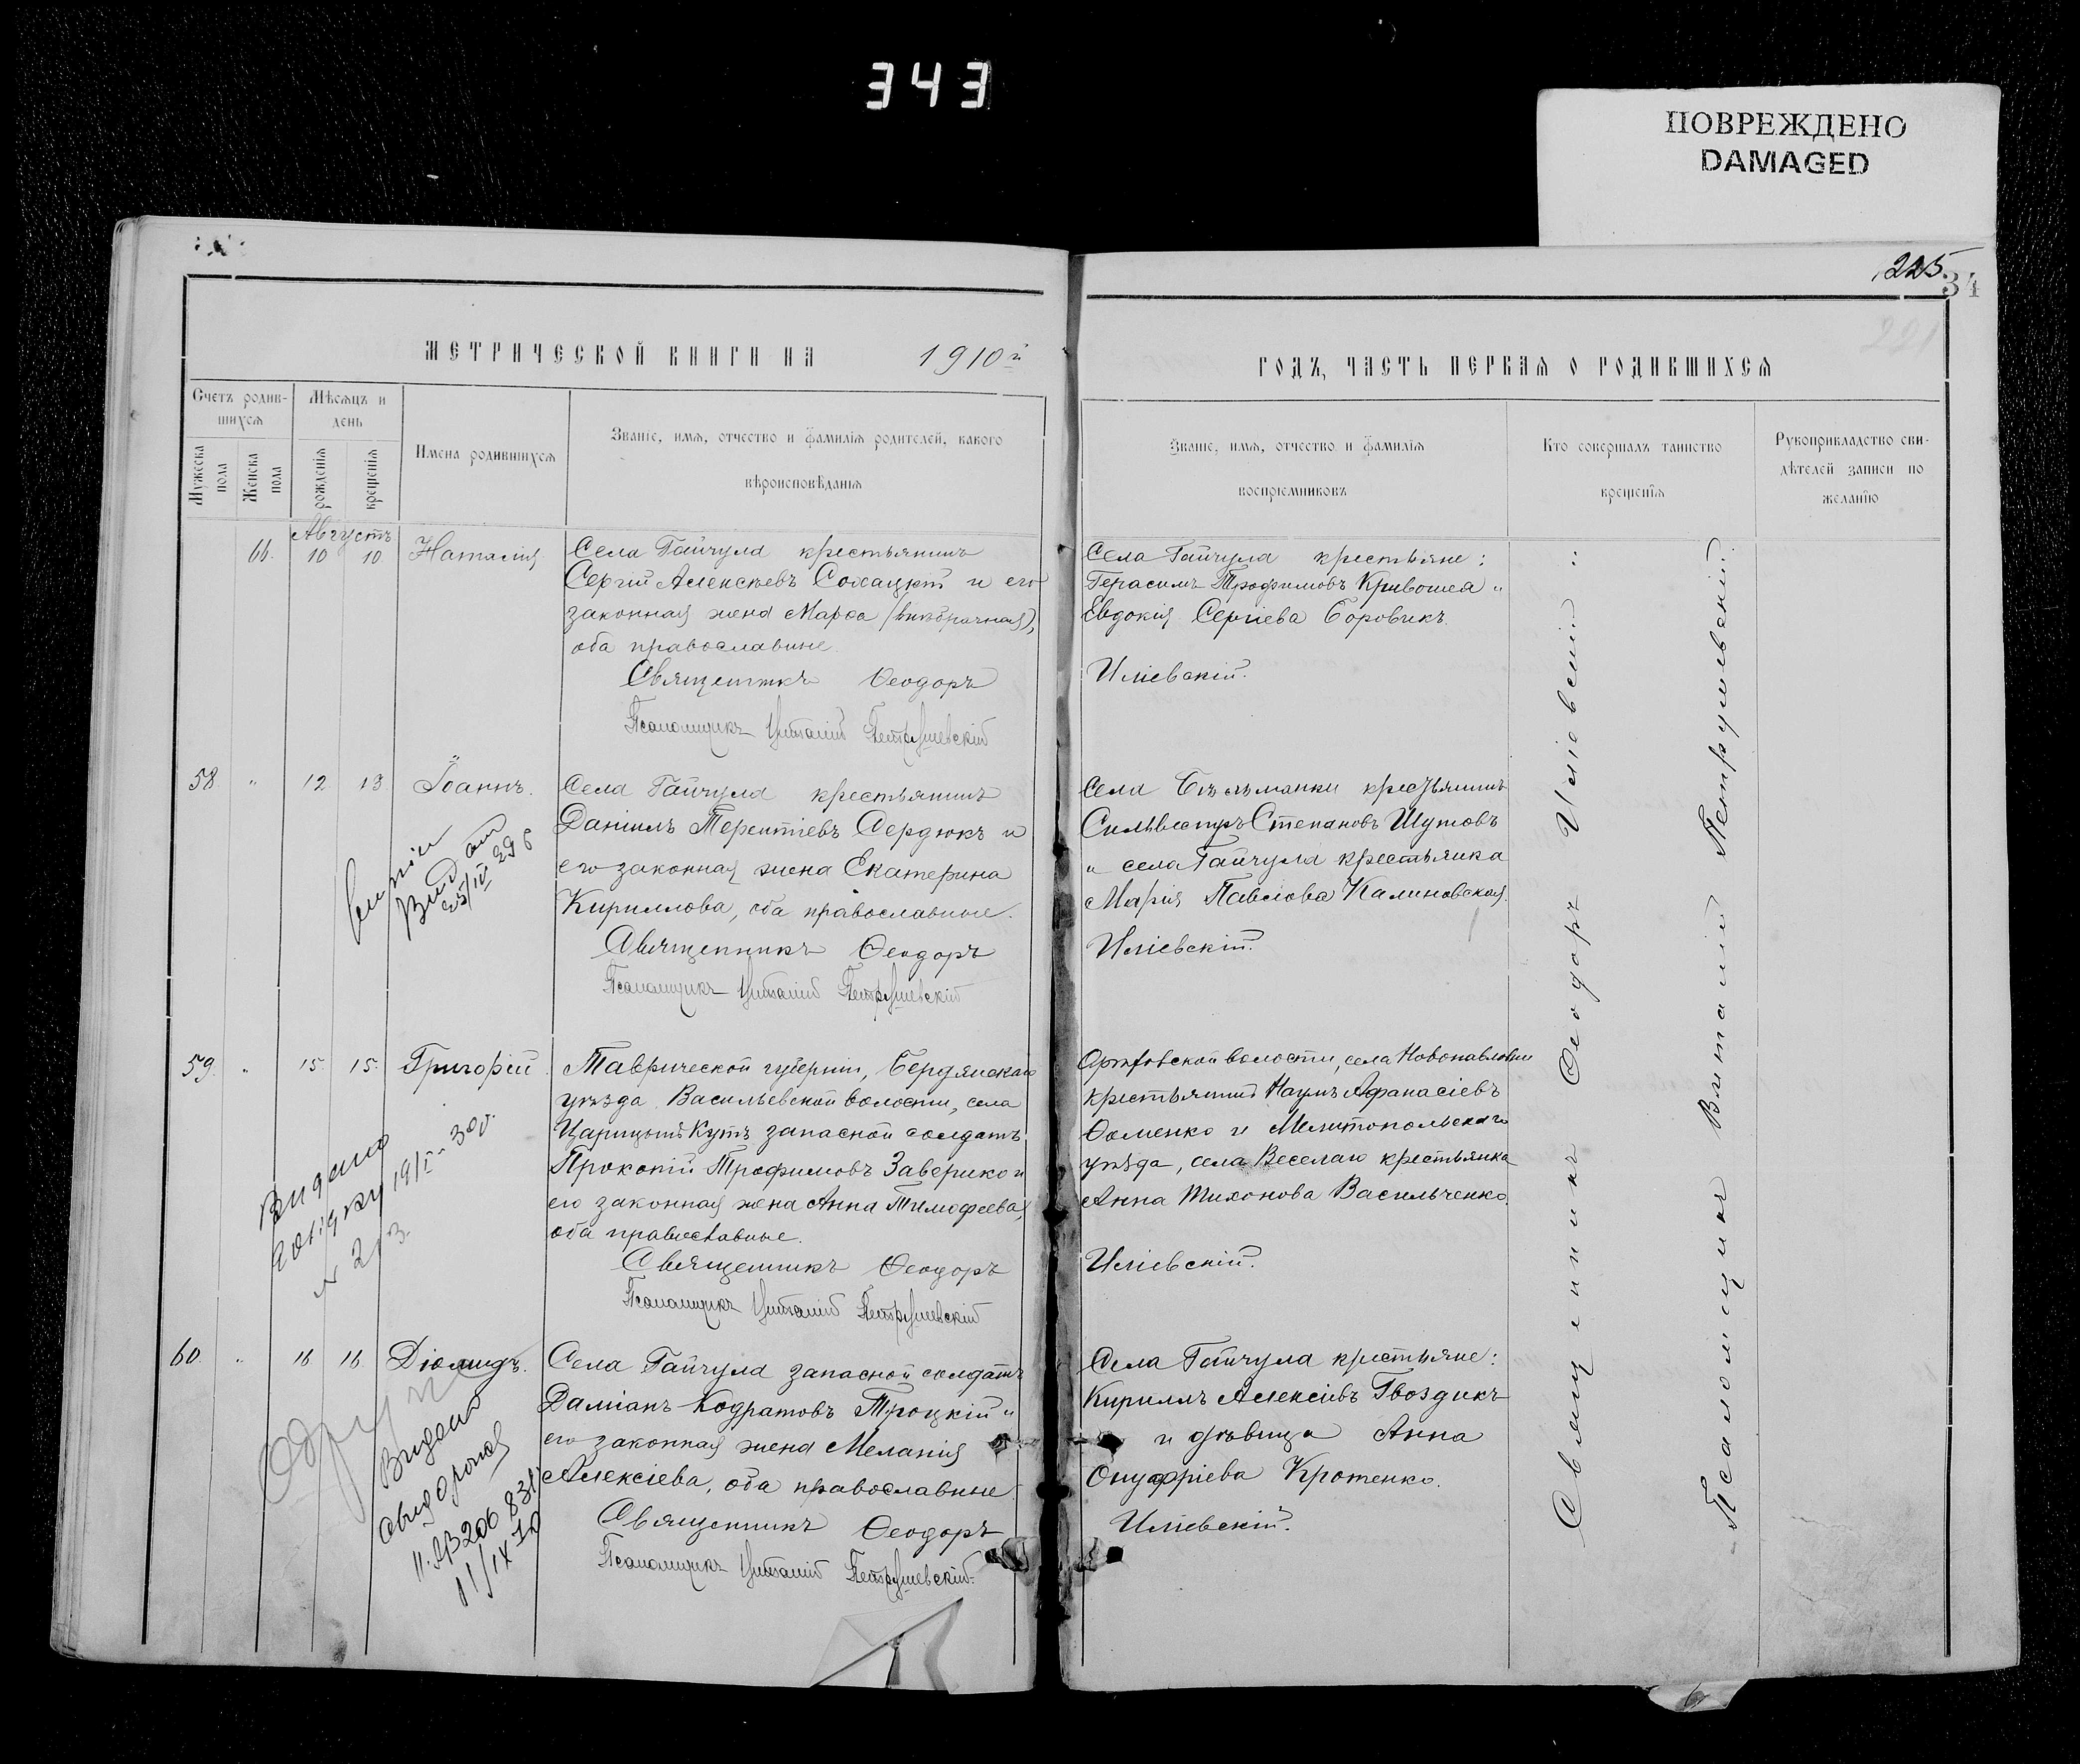 343
ПОВРЕЖДЕНО
DAMAGED
225
34
221
МЕТРИЧЕСКОЙ КНИГИ НА 1910й
ГОДЪ, ЧАСТЬ ПЕРВАЯ О РОДИВШИХСЯ
Счетъ родив-
шихся
Мѣсяцъ и
день
Мужеска
пола
Женска
пола
рожденія
крещенія
Имена родившихся
Званіе, имя, отчество и фамилія родителей, какого
вѣроисповѣданія
Званіе, имя, отчество и фамилія
воспріемниковъ
Кто совершалъ таинство
крещенія
Рукоприкладство сви-
дѣтелей записи по
желанію
Августъ
66. 10 10 Наталія
Села Гайчула крестьянинъ
Сергій Алексѣевъ и его
законная жена Марѳа (внѣбрачная),
оба православные.
Священникъ Ѳеодоръ
Псаломщикъ Виталій Петрушевскій
Села Гайчула крестьяне:
Герасимъ Трофимовъ Кривошея и
Евдокія Сергіева Боровикъ.
Иліевскій.
58 " 12 13 Іоаннъ.
Села Гайчула крестьянинъ
Даніилъ Терентіевъ Сердюкъ и
его законная жена Екатерина
Кириллова, оба православные.
Священникъ Ѳеодоръ
Псаломщикъ Виталій Петрушевскій
25/IV 29 г
Села Бѣльманки крестьянинъ
Сильвестръ Степановъ Шутовъ
и села Гайчула крестьянка
Марія Павлова Калиновская.
Иліевскій.
59. " 15. 15. Григорій.
Таврической губерніи, Бердянскаго
уѣзда Васильевской волости, села
Царицынъ Кутъ запасной солдатъ
Прокопій Трофимовъ Заверико и
его законная жена Анна Тимофеева,
оба православные.
Священникъ Ѳеодоръ
Псаломщикъ Виталій Петрушевскій
Видано
волости, села Новопавловки
крестьянинъ Наумъ Афанасіевъ
Ѳоменко и Мелитопольскаго
уѣзда, села Веселаго крестьянка
Анна Тихонова Васильченко.
Иліевскій.
60. " 16 16 Діомидъ.
Села Гайчула запасной солдатъ
Даміанъ Кодратовъ Троцкій и
его законная жена Меланія
Алексіева, оба православные.
Священникъ Ѳеодоръ
Псаломщикъ Виталій Петрушевскій.
Видано
11/IX 70
Села Гайчула крестьяне:
Кириллъ Алексіевъ Гвоздикъ
и дѣвица Анна
Онуфріева Кротенко.
Иліевскій.
Священникъ Ѳеодоръ Иліевскій
Псаломщикъ Виталій Петрушевскій